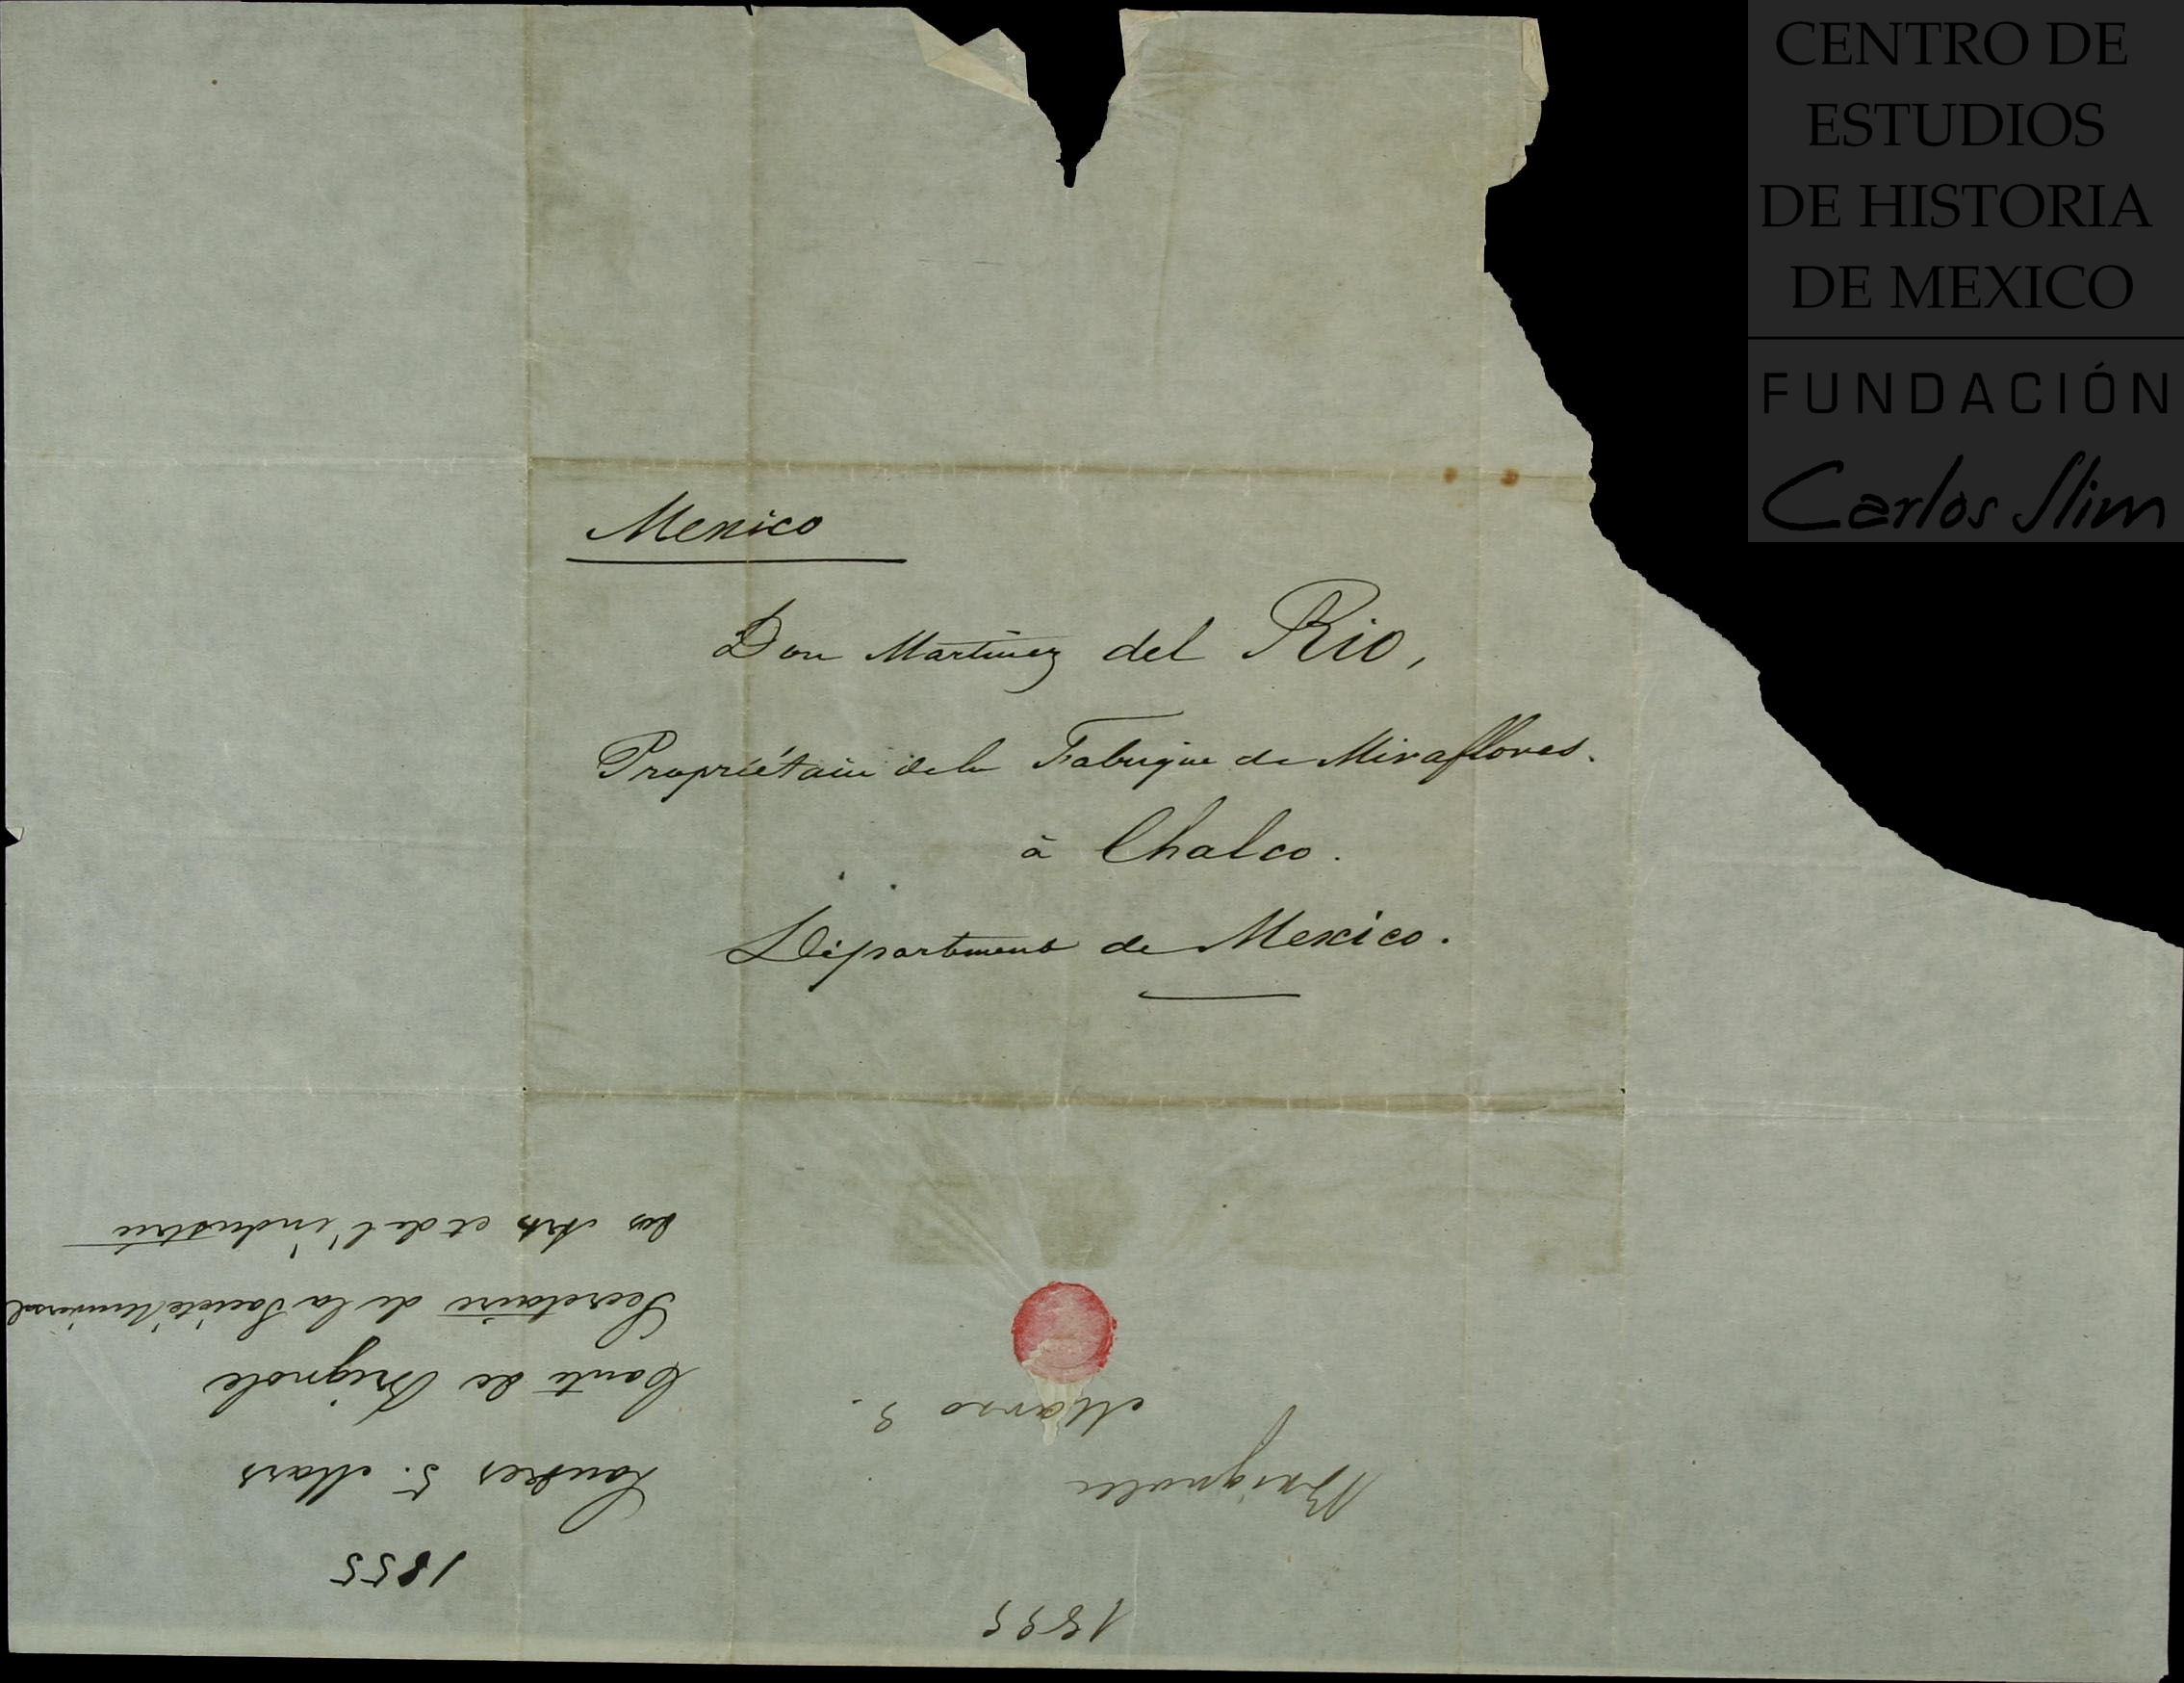 CENTRO DE
ESTUDIOS
DE HISTORIA
DE MEXICO
FUNDACIÓN
Carlos Slim
Mexico
Don Martinez del Rio,
Propriétaire de la Fabrique de Miraflores.
à Chalco.
Département de Mexico.
1855
Londres 5. Mars
Comte de Brignole
Secretaire de la Societé Universel
des Arts et de l'industrie
1855
Marzo 5.